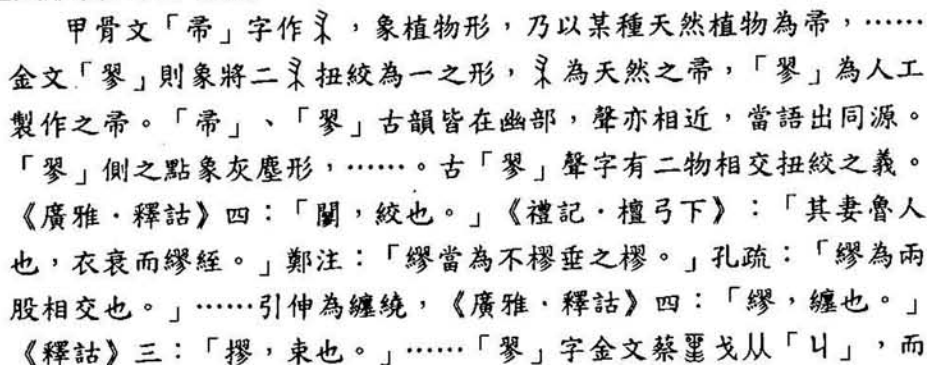 甲骨文「帚」字作,象植物形,乃以某種天然植物為帚,……
金文「翏」則象將二扭絞為一之形,為天然之帚,「翏」為人工
製作之帚。「帚」、「翏」古韻皆在幽部,聲亦相近,當語出同源。
「翏」側之點象灰塵形,……。古「翏」聲字有二物相交扭絞之義。
《廣雅·釋詁》四:「,絞也。」《禮記·檀弓下》:「其妻魯人
也,衣衰而繆絰。」鄭注:「繆當為不樛垂之樛。」孔疏:「繆為兩
股相交也。」……引伸為纏繞,《廣雅·釋詁》四:「繆,纏也。」
《釋詁》三:「摎,束也。」……「翏」字金文蔡戈从「丩」,而